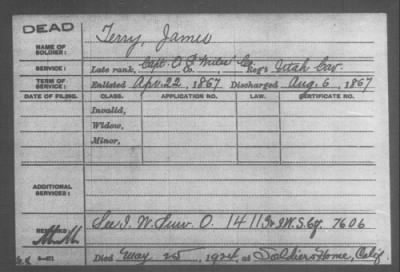 DEAD
NAME OF SOLDIER: Terry, James
SERVICE: Late rank, Capt. O. Miles' Co. Reg't Utah Cav.
TERM OF SERVICE: Enlisted Apr. 22, 1867 Discharged Aug. 6, 1867
DATE OF FILING. CLASS. APPLICATION NO. LAW. CERTIFICATE NO.
Invalid,
Widow,
Minor,
ADDITIONAL SERVICES:
REMARKS: See I. W. Surv. O. 14119 I.W.S. Ctf. 7606
Died May 25, 1924, at Soldiers Home, Calif.